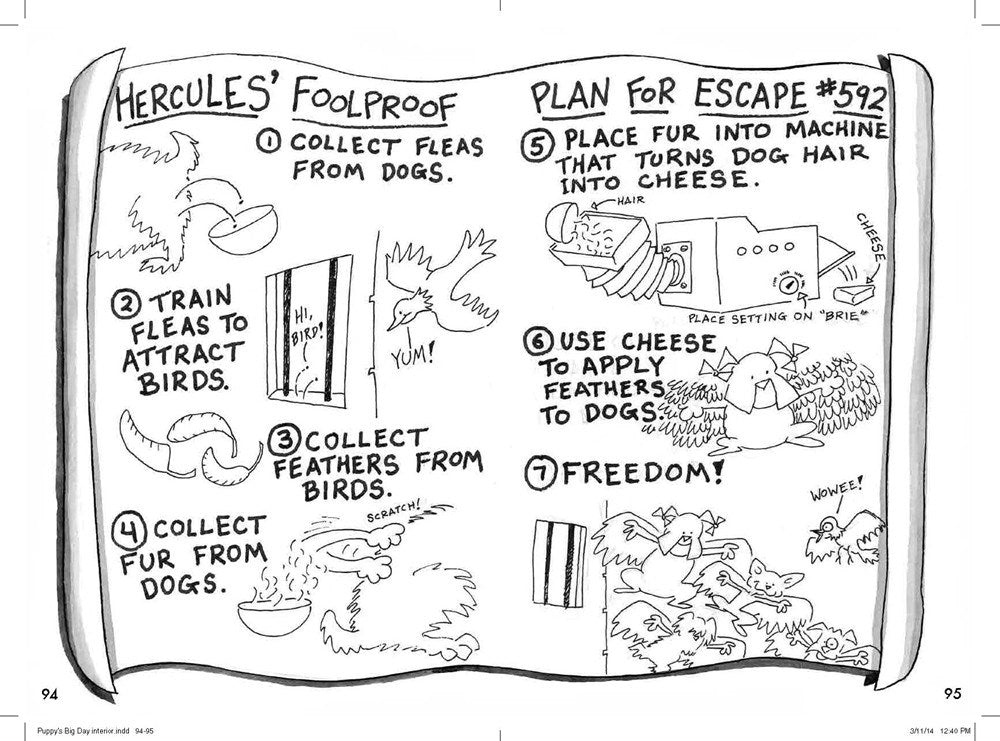 HERCULES' FOOLPROOF
① COLLECT FLEAS
FROM DOGS.
② TRAIN
FLEAS TO
ATTRACT
BIRDS.
HI,
BIRD!
YUM!
③ COLLECT
FEATHERS FROM
BIRDS.
④ COLLECT
FUR FROM
DOGS.
SCRATCH!
94
PLAN FOR ESCAPE #592
⑤ PLACE FUR INTO MACHINE
THAT TURNS DOG HAIR
INTO CHEESE.
HAIR
CHEESE
PLACE SETTING ON "BRIE"
⑥ USE CHEESE
TO APPLY
FEATHERS
TO DOGS.
⑦ FREEDOM!
WOWEE!
95
Puppy's Big Day interior.indd 94-95
3/11/14 12:40 PM